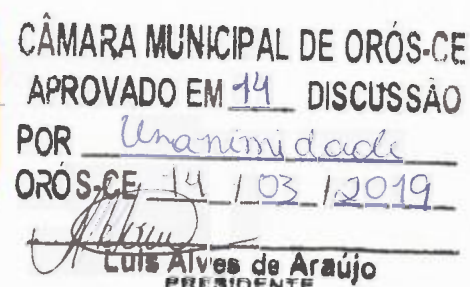 CÂMARA MUNICIPAL DE ORÓS-CE
APROVADO EM 14 DISCUSSÃO
POR Unanimidade
ORÓS-CE 14 / 03 / 2019
Luis Alves de Araújo
PRESIDENTE